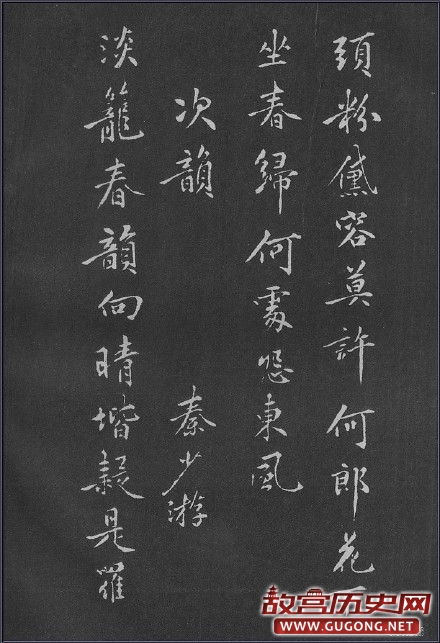 頭粉黛容莫許何郎花
坐春歸何處怨東風
次韻 秦少游
淡籠春韻向晴堦疑是羅
故宫历史网
WWW.GUGONG.NET